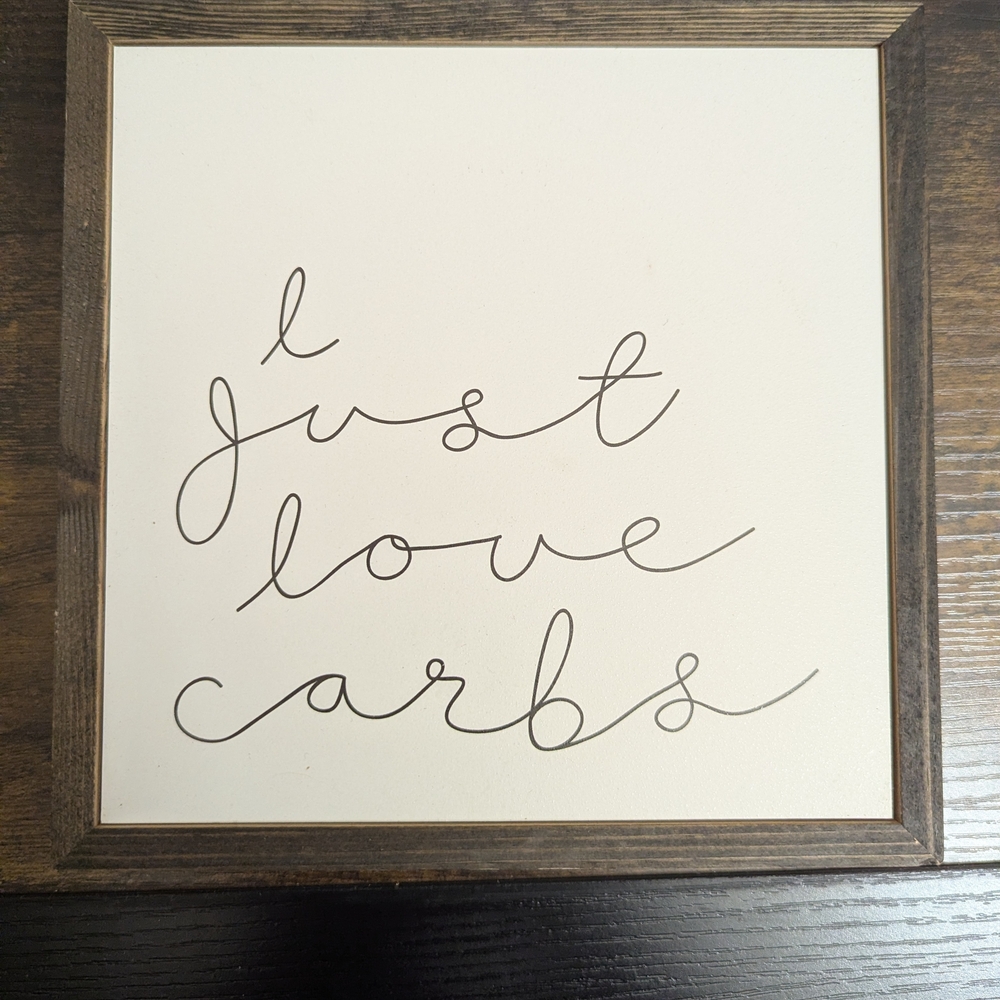 I
just
love
carbs